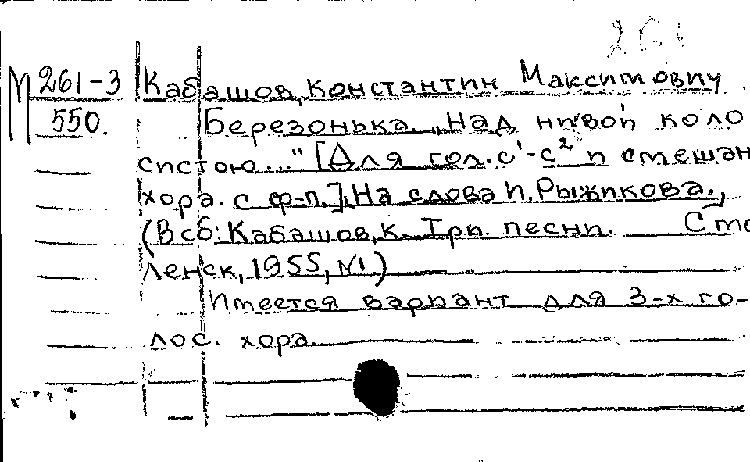 261
М 261-3 Кабашов, Константин Максимович
550. Березонька. "Над нивой коло
систою..." [Для гол. с¹-с² и смешан
хора. с ф-п.]. На слова И. Рыжикова.,
(В сб: Кабашов, К. Три песни. Смо
ленск, 1955, №1)
Имеется вариант для 3-х го-
лос. хора.